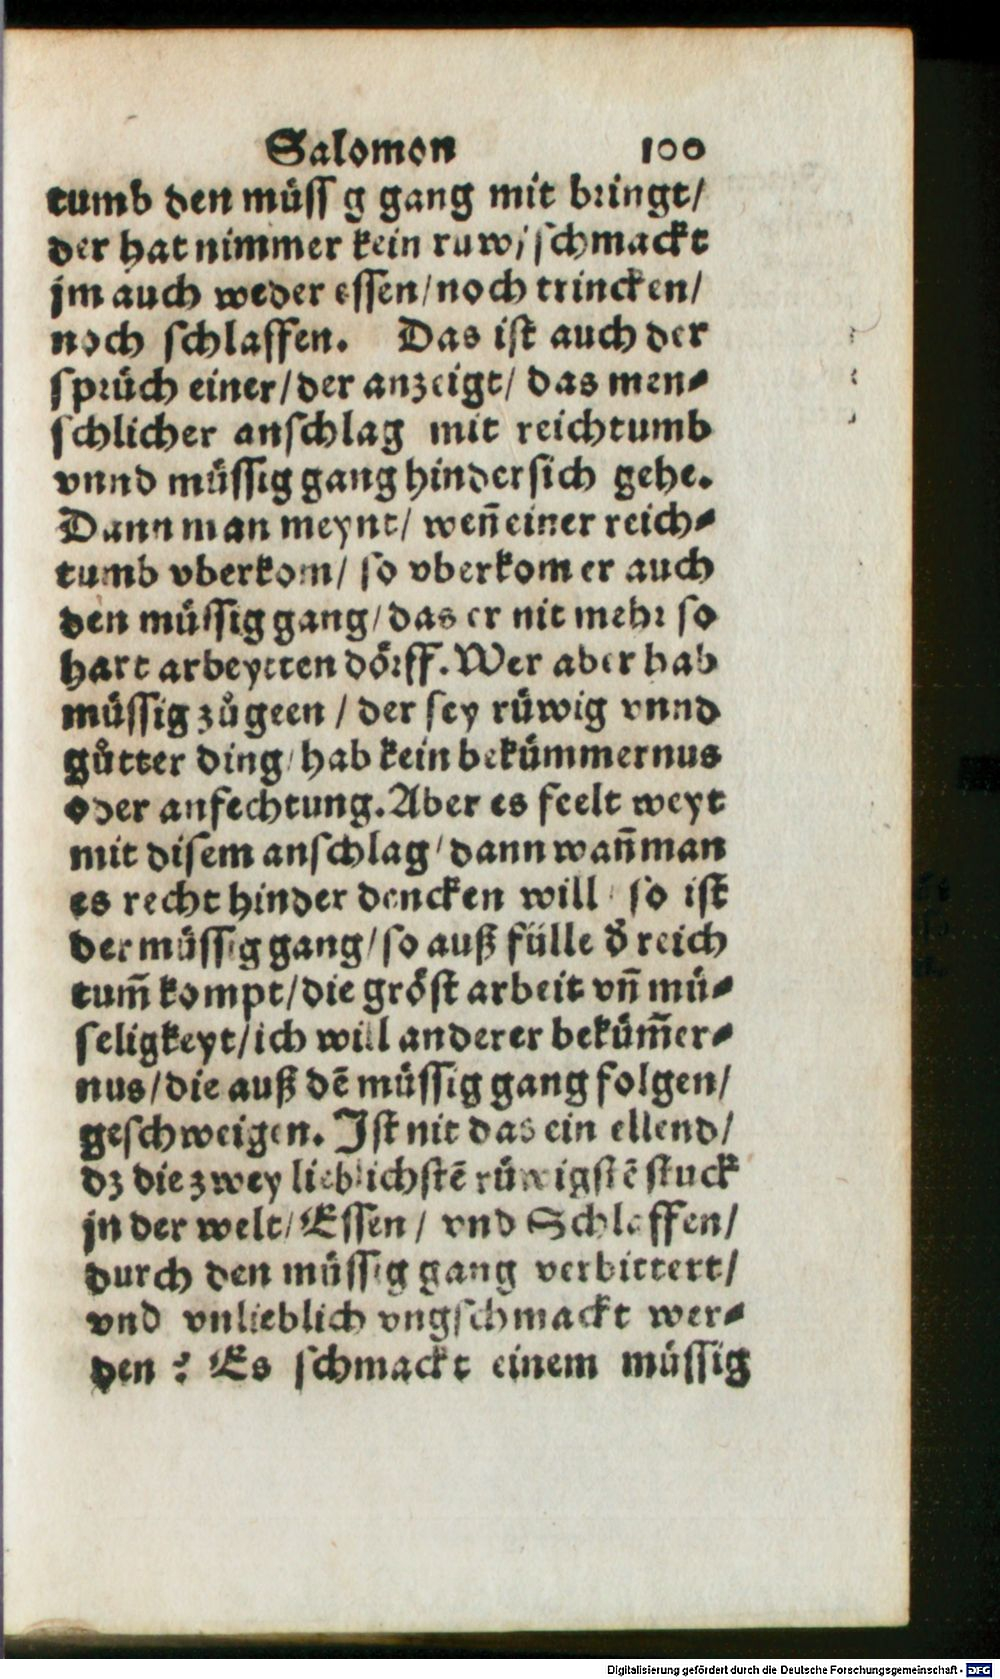 Salomon 100
tumb den müss g gang mit bringt/
der hat nimmer kein ruw/ schmackt
jm auch weder essen/noch trincken/
noch schlaffen. Das ist auch der
sprüch einer/der anzeigt/ das men-
schlicher anschlag mit reichtumb
vnnd müssig gang hindersich gehe.
Dann man meynt/ weñ einer reich-
tumb vberkom/ so vberkom er auch
den müssig gang/das er nit mehr so
hart arbeytten dörff. Wer aber hab
müssig zůgeen / der sey rüwig vnnd
gůtter ding/hab kein bekümmernus
oder anfechtung. Aber es feelt weyt
mit disem anschlag/dann wañ man
es recht hinder dencken will/ so ist
der müssig gang/so auß fülle d̓ reich
tum̃ kompt/die gröst arbeit vñ mü-
seligkeyt/ich will anderer beküm̃er-
nus/die auß dē müssig gang folgen/
geschweigen. Ist nit das ein ellend/
dz die zwey lieblichstē rüwigstē stuck
jn der welt/ Essen/ vnd Schlaffen/
durch den müssig gang verbittert/
vnd vnlieblich vngschmackt wer-
den ? Es schmackt einem müssig
Digitalisierung gefördert durch die Deutsche Forschungsgemeinschaft - DFG